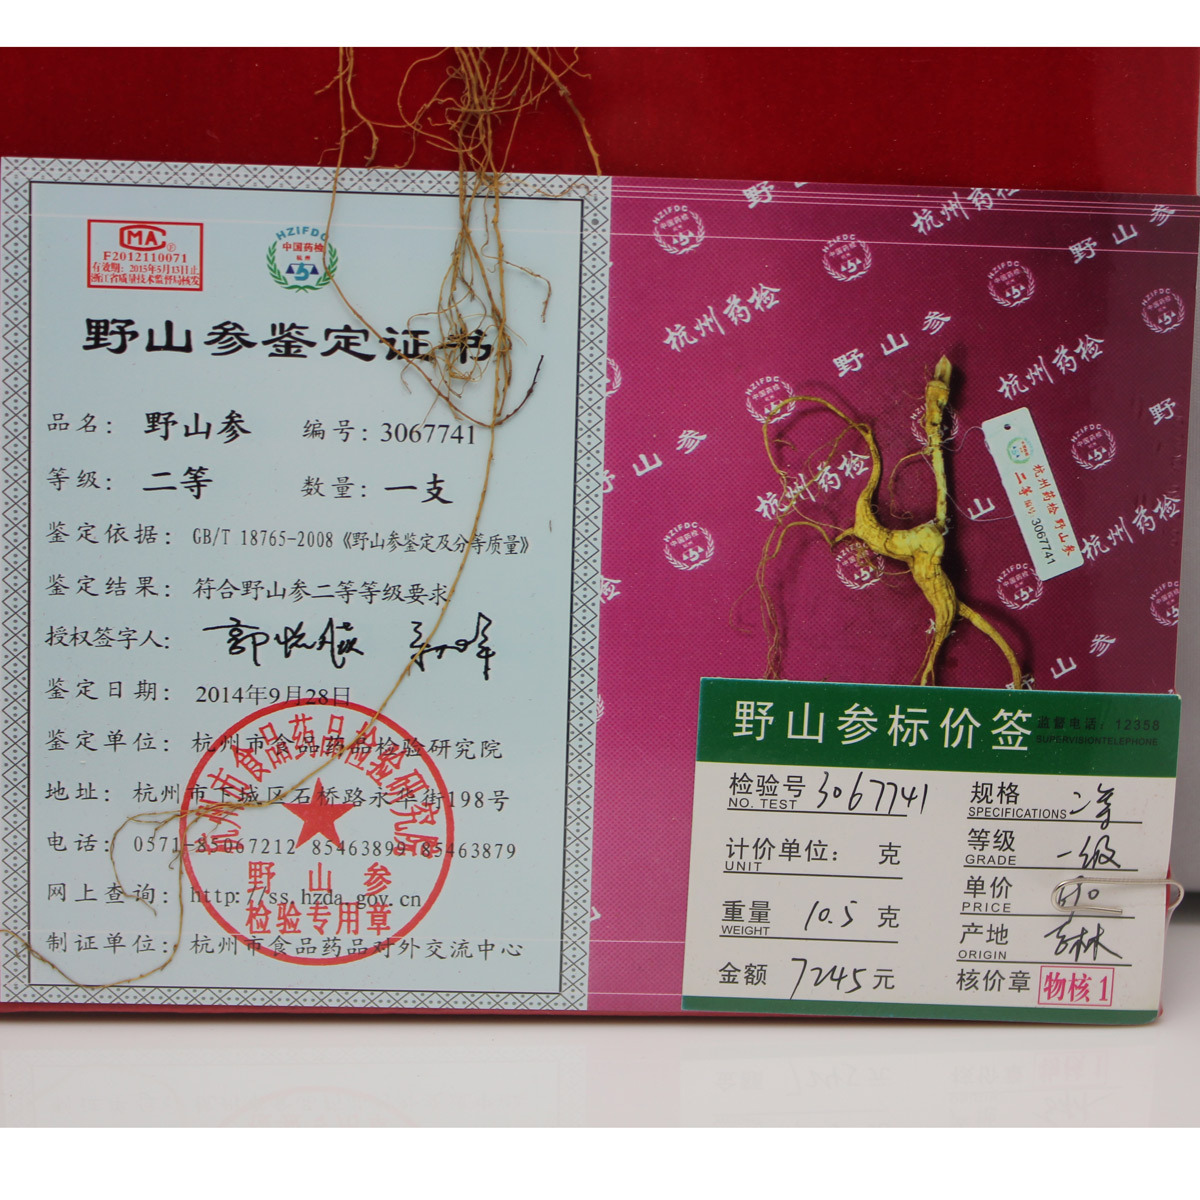 CMA
F2012110071
有效期：2015年5月13日止
浙江省质量技术监督局核发
HZIFDC
中国药检
杭州
野山参鉴定证书
品名：野山参 编号：3067741
等级：二等 数量：一支
鉴定依据：GB/T 18765-2008《野山参鉴定及分等质量》
鉴定结果：符合野山参二等等级要求
授权签字人：
鉴定日期：2014年9月28日
鉴定单位：杭州市食品药品检验研究院
地址：杭州市下城区石桥路永华街198号
电话：0571-85067212 85463899 85463879
网上查询：http://ss.hzda.gov.cn
制证单位：杭州市食品药品对外交流中心
杭州市食品药品检验研究院
野山参
检验专用章
杭州药检
野山参
杭州药检 野山参
二等 编号 3067741
野山参标价签
监督电话：12358
SUPERVISIONTELEPHONE
检验号 3067741
NO. TEST
规格 二等
SPECIFICATIONS
计价单位：克
UNIT
等级 一级
GRADE
重量 10.5 克
WEIGHT
单价
PRICE
产地 吉林
ORIGIN
金额 7245元
核价章 物核1